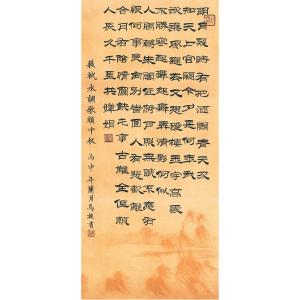 明月幾時有把酒問青天不
知天上宮闕今夕是何年我
欲乘風歸去又恐瓊樓玉宇高處
不勝寒起舞弄清影何似在
人間轉朱閣低綺戶照無眠不應有
恨何事長向別時圓人有悲歡離
合月有陰晴圓缺此事古難全但願
人長久千里共嬋娟
蘇軾水調歌頭中秋 丙申年蘭月馬挺書